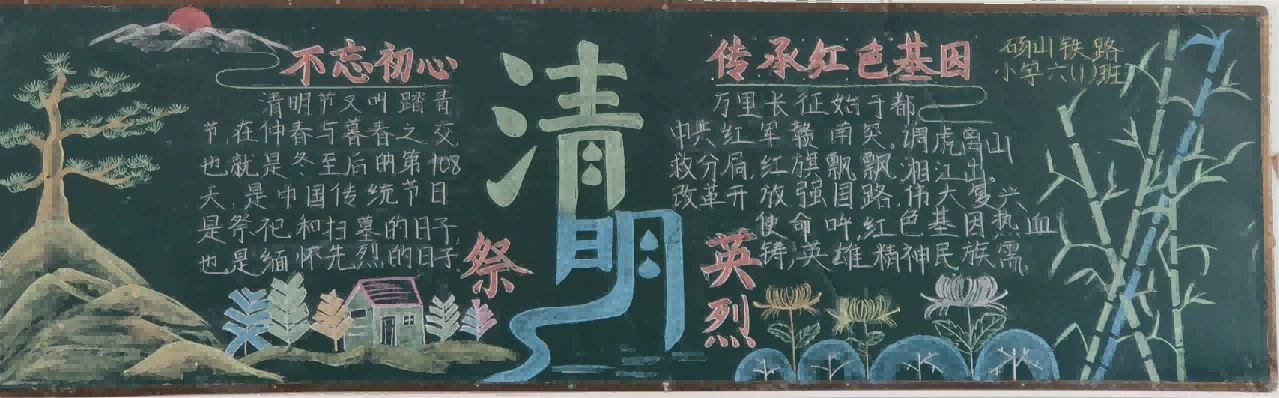 不忘初心
清明节又叫踏青
节,在仲春与暮春之交
也就是冬至后的第108
天,是中国传统节日
是祭祀和扫墓的日子,
也是缅怀先烈的日子.
清明
祭
英烈
传承红色基因
万里长征始于都,
中共红军赣南突,调虎离山
救分局,红旗飘飘湘江出。
改革开放强国路,伟大复兴
使命吽,红色基因热血
铸,英雄精神民族需
砀山铁路
小学六(1)班